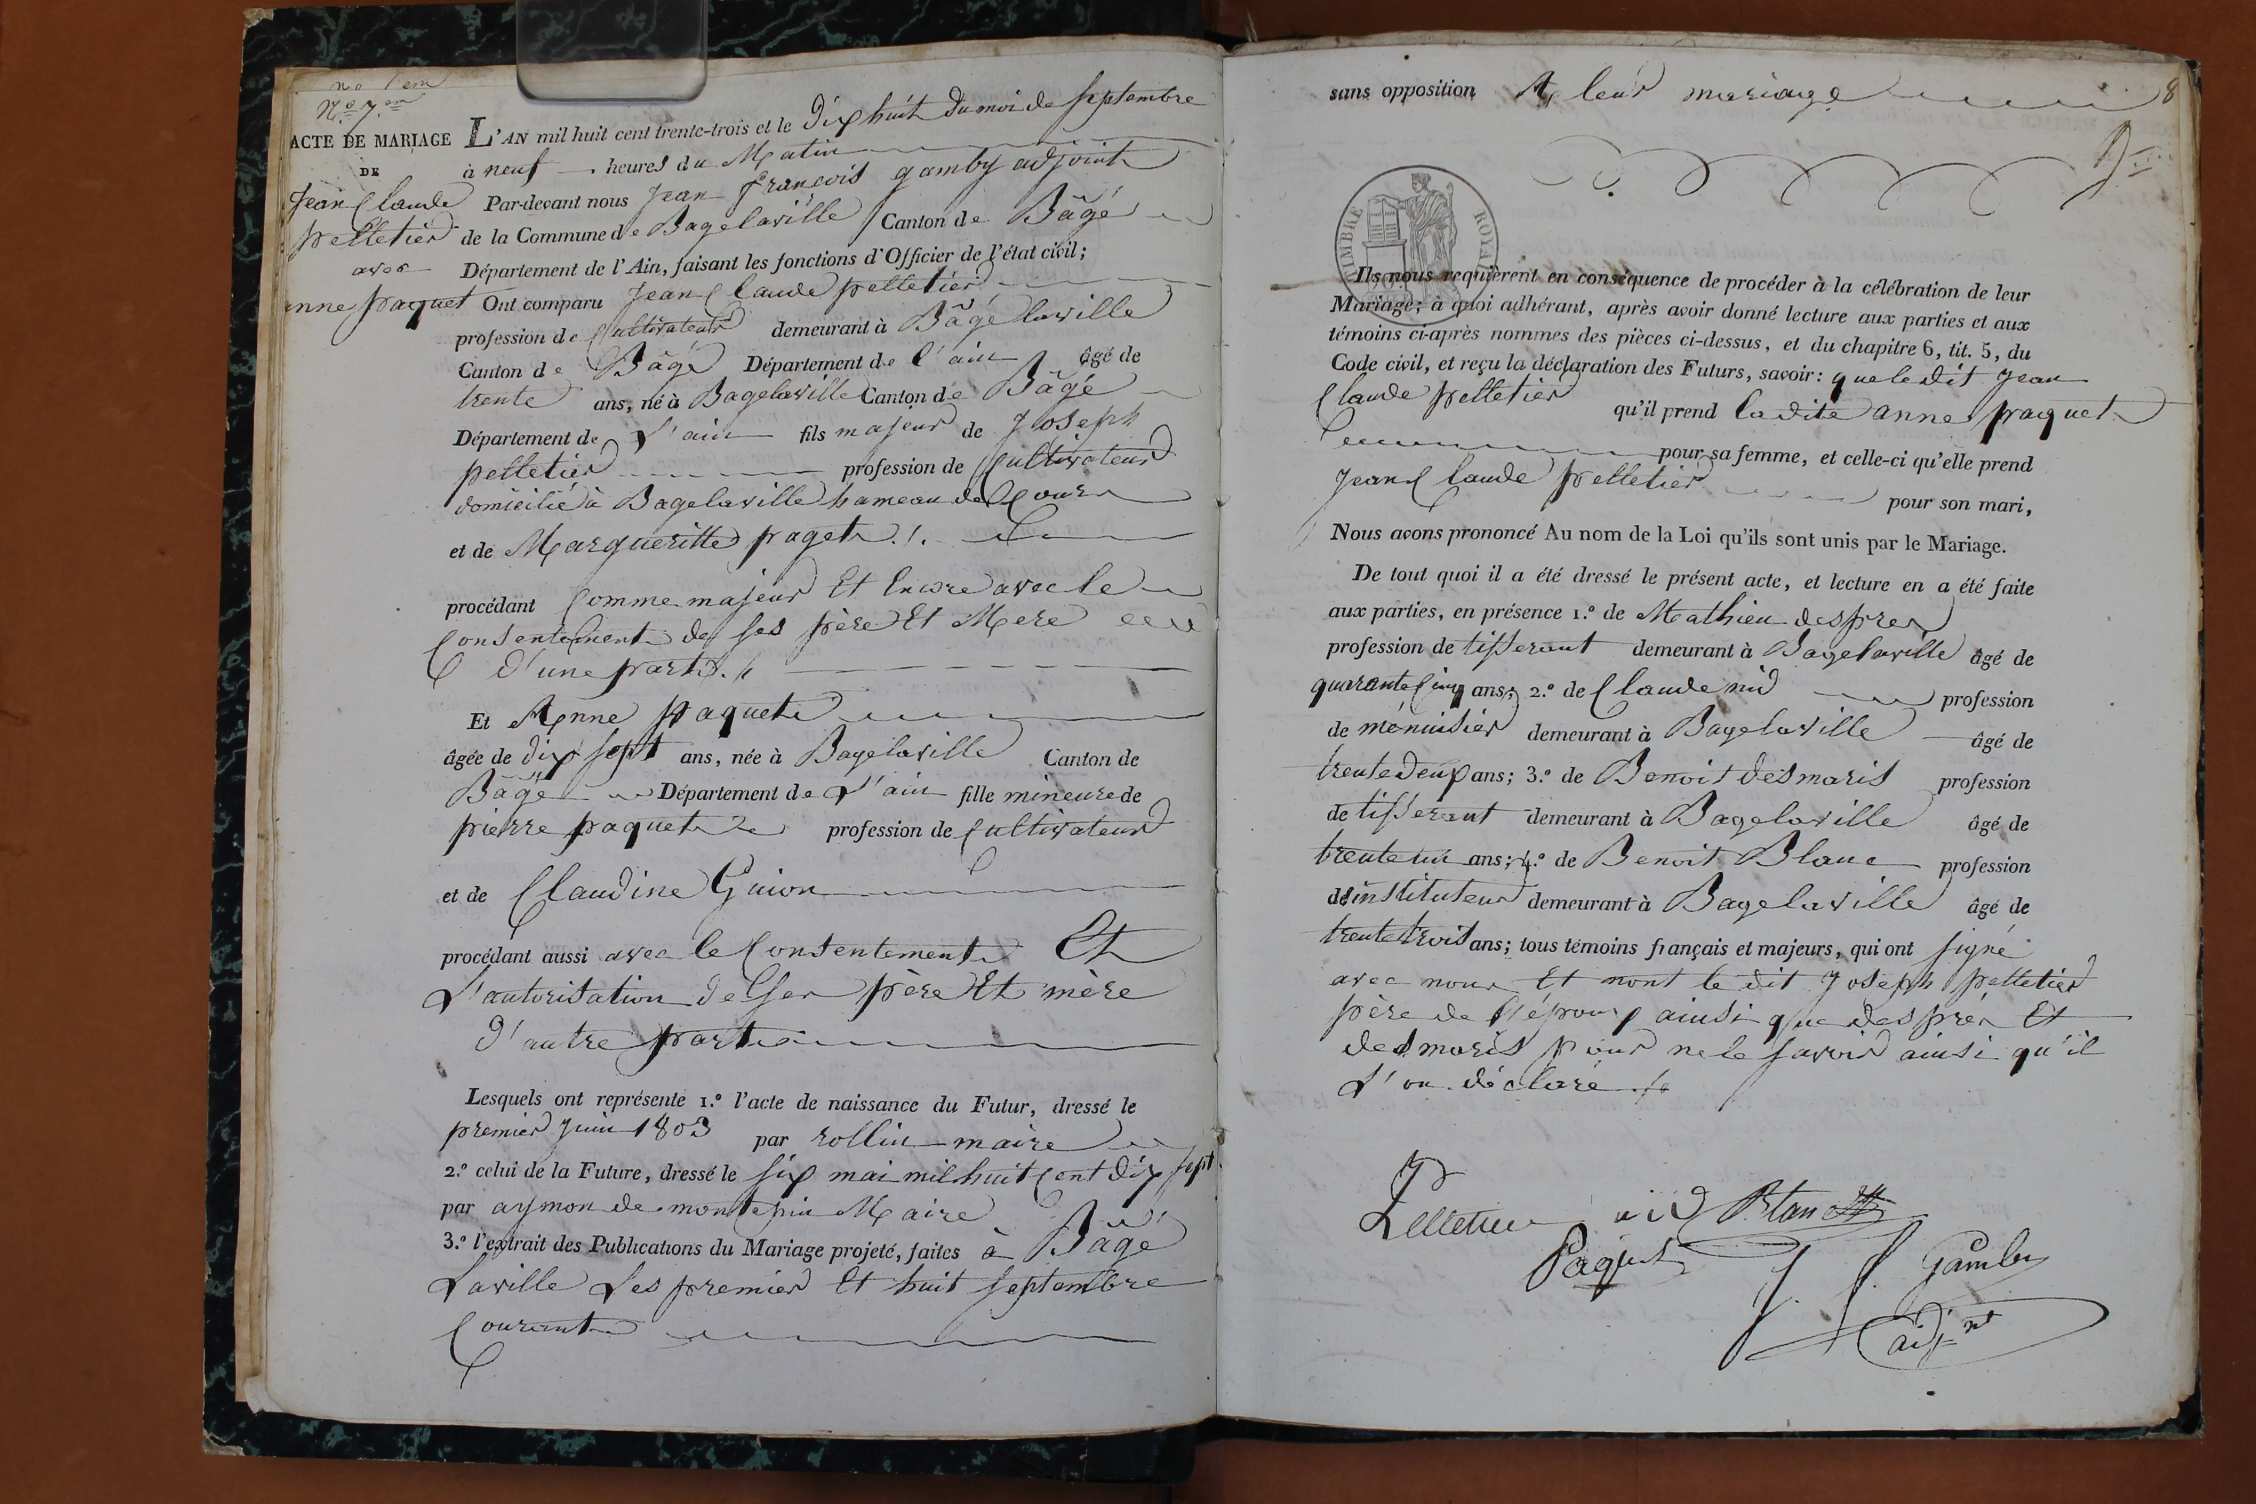 N.o 7.em
ACTE DE MARIAGE
DE
Jean Claude
pelletier
avec
anne paquet
L'AN mil huit cent trente-trois et le dix huit du moi de septembre
à neuf heures du Matin
Par-devant nous Jean François gamby adjoint
de la Commune de Bagelaville Canton de Bâgé
Département de l'Ain, faisant les fonctions d'Officier de l'état civil;
Ont comparu Jean Claude pelletier
profession de Cultivateur demeurant à Bâgé laville
Canton de Bâgé Département de l'ain âgé de
trente ans, né à Bagelaville Canton de Bâgé
Département de L'ain fils majeur de Joseph
pelletier profession de Cultivateur
domicilié à Bagelaville hameau de Cours
et de Margueritte paget
procédant Comme majeur Et Encore avec le
Consentement de ses père Et Mere
d'une part
Et Anne paquet
âgée de dix sept ans, née à Bagelaville Canton de
Bâgé Département de L'ain fille mineure de
pierre paquet profession de Cultivateur
et de Claudine Guion
procédant aussi avec le Consentement Et
L'autorisation de Ses père Et mère
d'autre part
Lesquels ont représenté 1.o l'acte de naissance du Futur, dressé le
premier Juin 1803 par rollin maire
2.o celui de la Future, dressé le six mai mil huit Cent dix sept
par aymon de montepin Maire
3.o l'extrait des Publications du Mariage projeté, faites à Bâgé
Laville Les premier Et huit septembre
Courant
sans opposition A leur mariage
8
TIMBRE ROYAL
Ils nous requièrent en conséquence de procéder à la célébration de leur
Mariage; à quoi adhérant, après avoir donné lecture aux parties et aux
témoins ci-après nommes des pièces ci-dessus, et du chapitre 6, tit. 5, du
Code civil, et reçu la déclaration des Futurs, savoir: que ledit Jean
Claude pelletier qu'il prend la dite anne paquet
pour sa femme, et celle-ci qu'elle prend
Jean Claude pelletier pour son mari,
Nous avons prononcé Au nom de la Loi qu'ils sont unis par le Mariage.
De tout quoi il a été dressé le présent acte, et lecture en a été faite
aux parties, en présence 1.o de Mathieu despres
profession de tisserant demeurant à Bagelaville âgé de
quarante Cinq ans; 2.o de Claude nid profession
de ménuisier demeurant à Bagelaville âgé de
trente deux ans; 3.o de Benoit desmaris profession
de tisserant demeurant à Bagelaville âgé de
trente un ans; 4.o de Benoit Blanc profession
de instituteur demeurant à Bagelaville âgé de
trente trois ans; tous témoins français et majeurs, qui ont signé
avec nous Et nont le dit Joseph pelletier
père de l'époux ainsi que des près Et
des maris pour ne le savoir ainsi qu'il
L'on déclaré
Pelletier nid Blanc
Paquet J. F. Gamby
adjnt